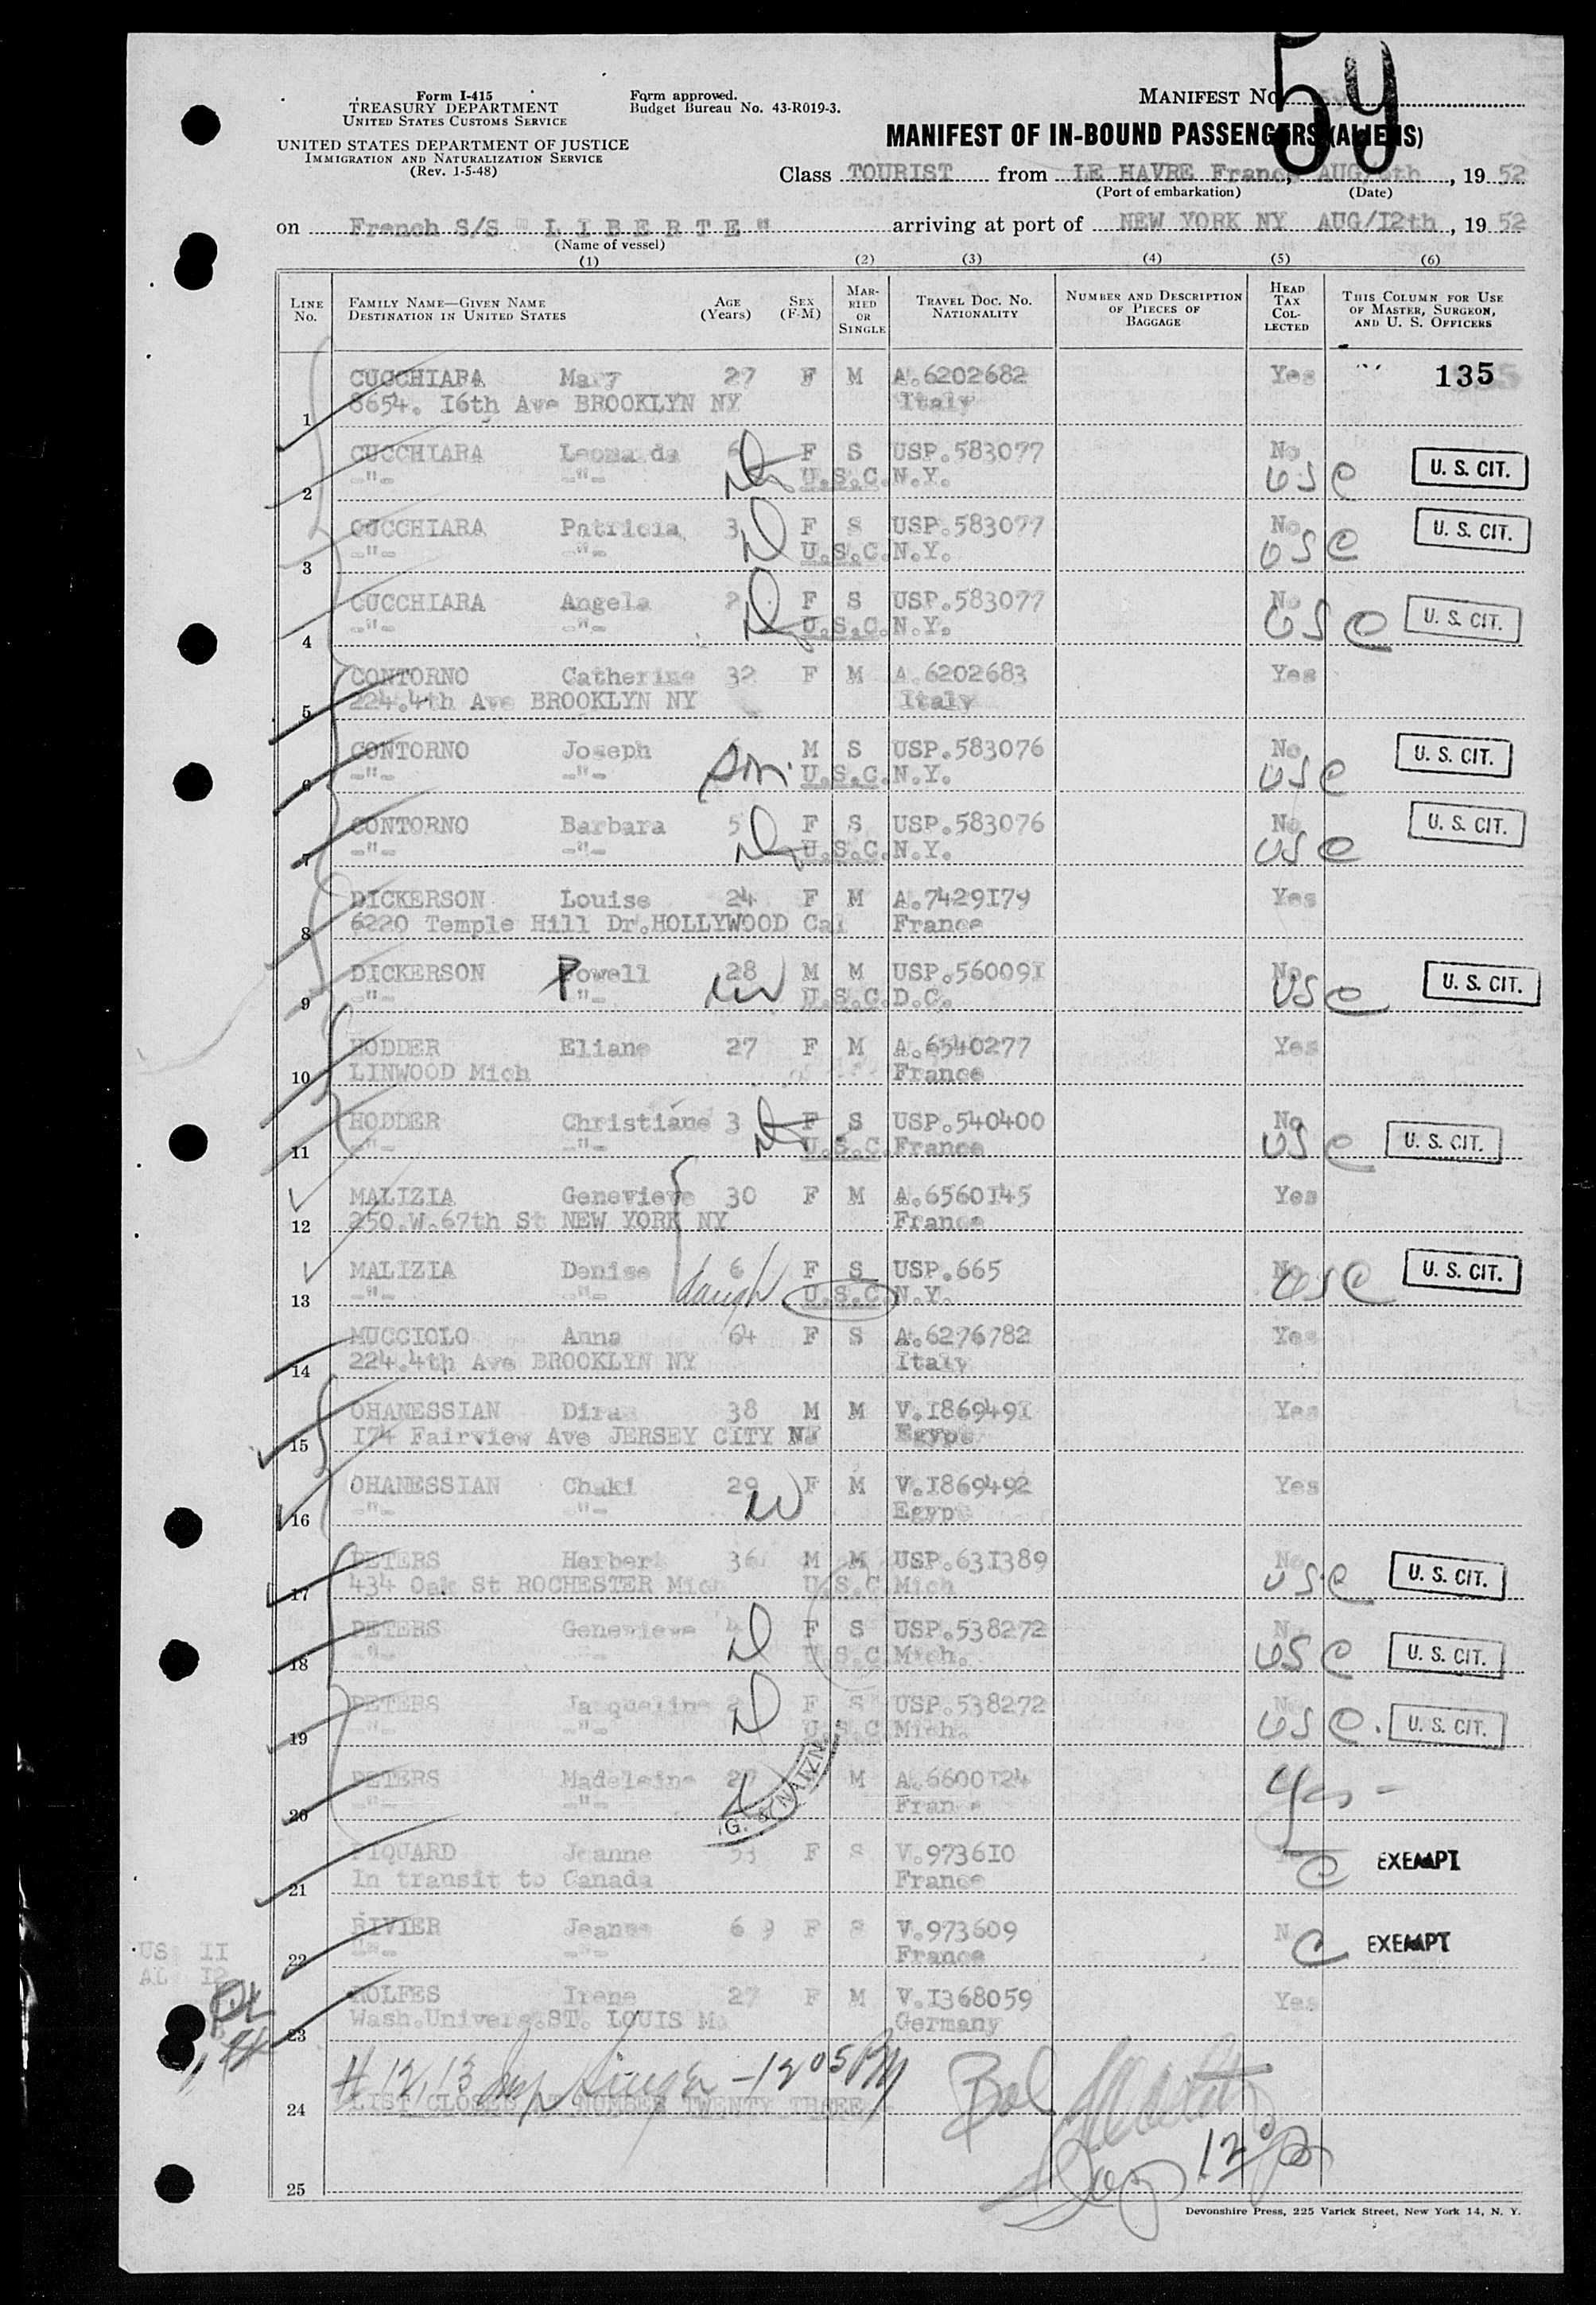 59
Form I-415
TREASURY DEPARTMENT
UNITED STATES CUSTOMS SERVICE
UNITED STATES DEPARTMENT OF JUSTICE
IMMIGRATION AND NATURALIZATION SERVICE
(Rev. 1-5-48)
Form approved.
Budget Bureau No. 43-R019-3.
MANIFEST NO.
MANIFEST OF IN-BOUND PASSENGERS (ALIENS)
Class TOURIST from LE HAVRE France, AUG/ th, 19 52
(Port of embarkation) (Date)
on French S/S "L I B E R T E" arriving at port of NEW YORK NY AUG/I2th, 19 52
(Name of vessel)
(1) (2) (3) (4) (5) (6)
LINE NO. FAMILY NAME—GIVEN NAME DESTINATION IN UNITED STATES AGE (Years) SEX (F-M) MARRIED OR SINGLE TRAVEL DOC. NO. NATIONALITY NUMBER AND DESCRIPTION OF PIECES OF BAGGAGE HEAD TAX COLLECTED THIS COLUMN FOR USE OF MASTER, SURGEON, AND U. S. OFFICERS
CUCCHIARA Mary 27 F M A.6202682 Yes 135
1 8654. I6th Ave BROOKLYN NY Italy
CUCCHIARA Leonarda 6 F S USP.583077 No
2 -"- -"- U.S.C. N.Y. USC U. S. CIT.
CUCCHIARA Patricia 3 D F S USP.583077 No U. S. CIT.
3 -"- -"- U.S.C. N.Y. USC
CUCCHIARA Angela 2 D F S USP.583077 No
4 -"- -"- U.S.C. N.Y. USC U. S. CIT.
CONTORNO Catherine 32 F M A.6202683 Yes
5 224.4th Ave BROOKLYN NY Italy
CONTORNO Joseph M S USP.583076 No U. S. CIT.
6 -"- -"- son. U.S.C. N.Y. USC
CONTORNO Barbara 5 F S USP.583076 No U. S. CIT.
7 -"- -"- D U.S.C. N.Y. USC
DICKERSON Louise 24 F M A.7429I79 Yes
8 6220 Temple Hill Dr.HOLLYWOOD Cal France
DICKERSON Powell 28 M M USP.56009I No U. S. CIT.
9 -"- -"- U.S.C. D.C. USC
HODDER Eliane 27 F M A.6540277 Yes
10 LINWOOD Mich France
HODDER Christiane 3 F S USP.540400 No
11 -"- -"- U.S.C. France USC U. S. CIT.
MALIZIA Genevieve 30 F M A.6560I45 Yes
12 250.W.67th St NEW YORK NY France
MALIZIA Denise 6 F S USP.665 No U. S. CIT.
13 -"- -"- daugh U.S.C. N.Y. USC
MUCCIOLO Anna 64 F S A.6276782 Yes
14 224.4th Ave BROOKLYN NY Italy
OHANESSIAN Diran 38 M M V.I86949I Yes
15 I74 Fairview Ave JERSEY CITY NJ Egypt
OHANESSIAN Chaki 29 F M V.I869492 Yes
16 -"- -"- W Egypt
PETERS Herbert 36 M M USP.63I389 No
17 434 Oak St ROCHESTER Mich U.S.C. Mich USC U. S. CIT.
PETERS Genevieve 4 F S USP.538272 No
18 -"- -"- D U.S.C. Mich. USC U. S. CIT.
PETERS Jacqueline 2 F S USP.538272 No
19 -"- -"- D U.S.C. Mich. USC. U. S. CIT.
PETERS Madeleine 27 M A.6600I24 Yes -
20 -"- -"- France
G. & NATZN.
PIQUARD Jeanne 53 F S V.9736I0 EXEMPT
21 In transit to Canada France
RIVIER Jeanne 69 F S V.973609 No EXEMPT
22 -"- -"- France
US II
AL I2
ROLFES Irene 27 F M V.I368059 Yes
23 Wash.Univers.ST. LOUIS Mo Germany
# 12, 13 Insp Singer - 12 05 PM
24 LIST CLOSED AT NUMBER TWENTY THREE
25
Devonshire Press, 225 Varick Street, New York 14, N. Y.